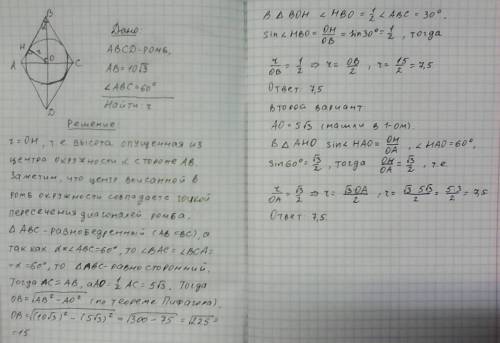 B
H
r
A
O
C
D
Дано:
ABCD-ромб,
AB=10√3
∠ABC=60°
Найти: r
Решение:
r=OH, т.е. высота опущенная из
центра окружности к стороне AB.
Заметим, что центр вписанной в
ромб окружности совпадает с точкой
пересечения диагоналей ромба.
△ABC-равнобедренный (AB=BC), а
так как ∠ABC=60°, то ∠BAC=∠BCA=
=60°, то △ABC-равносторонний.
Тогда AC=AB, а AO=1/2 AC=5√3. Тогда
OB=√AB²-AO² (по теореме Пифагора).
OB=√(10√3)²-(5√3)²=√300-75=√225=
=15
В △BOH ∠HBO=1/2∠ABC=30°.
sin∠HBO=OH/OB=sin30°=1/2, тогда
r/OB=1/2 ⇒ r=OB/2, r=15/2=7,5
Ответ 7,5
Второй вариант:
AO=5√3 (нашли в 1-ом).
В △AHO sin∠HAO=OH/OA, ∠HAO=60°,
sin60°=√3/2, тогда OH/OA=√3/2, т.е.
r/OA=√3/2 ⇒ r=√3·OA/2=√3·5√3/2=5·3/2=7,5
Ответ 7,5.